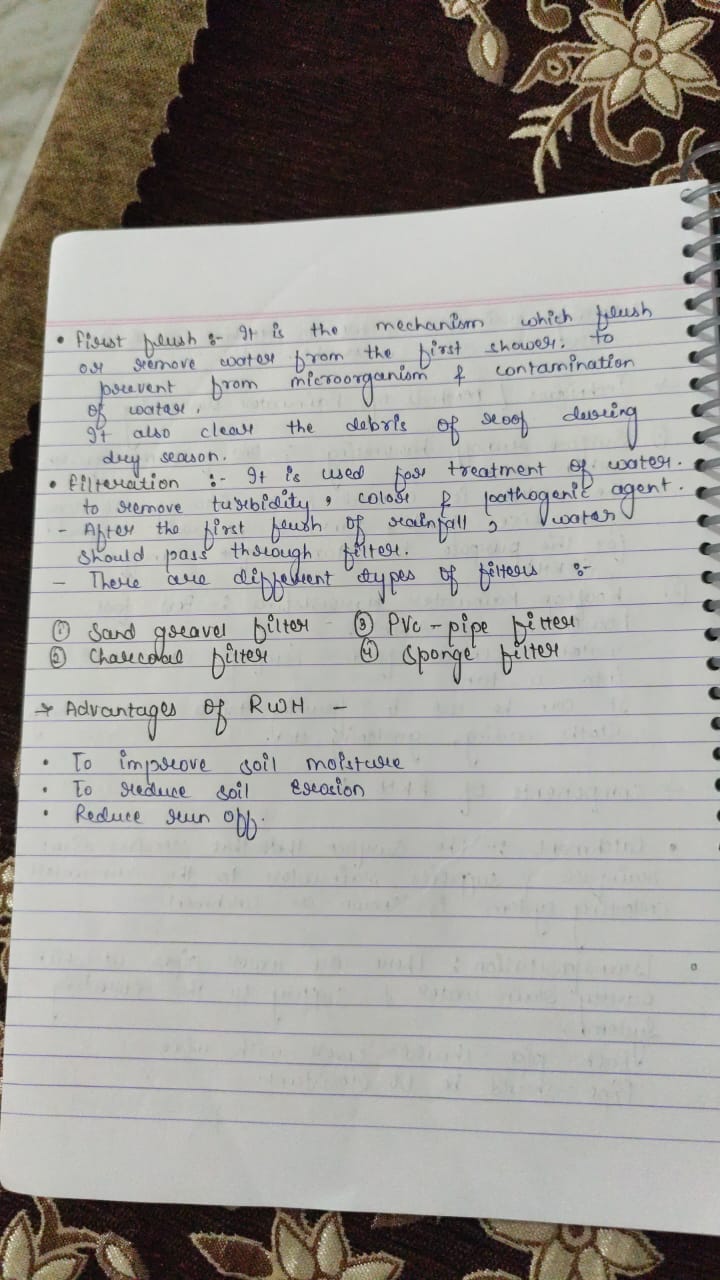 • first flush :- It is the mechanism which flush
or remove water from the first shower. to
prevent from microorganism & contamination
of water.
It also clear the debris of roof during
dry season.
• filteration :- It is used for treatment of water.
to remove turbidity, colour & pathogenic agent.
- After the first flush of rainfall, water
should pass through filter.
- There are different types of filters :-
① Sand gravel filter ③ PVC - pipe filter
② Charcoal filter ④ Sponge filter
→ Advantages of RWH -
• To improve soil moisture
• To reduce soil Erosion
• Reduce run off.